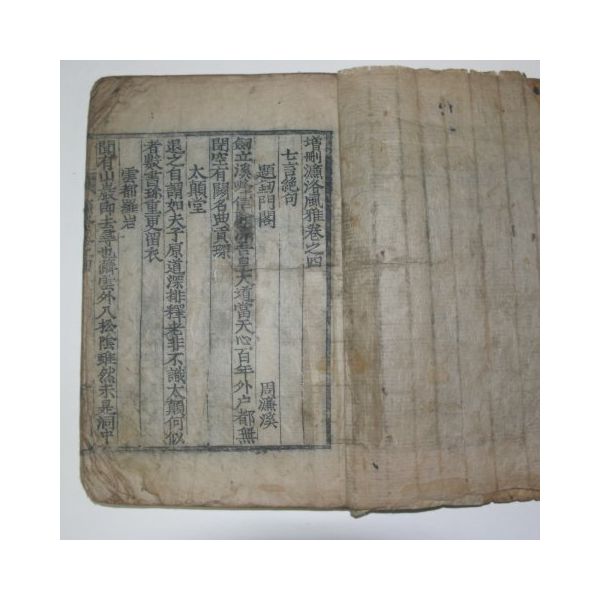 增刪濂洛風雅卷之四
七言絶句
題劒門閣 周濂溪
劒立溪峰信險深吾皇大道當天心百年外户都無
閉空有關名點貢琛
太顛堂
退之自謂如夫子原道深排釋老非不識太顛何似
者數書珎重更留衣
雲都羅岩
聞有山巖即去尋也躋雲外入松陰雖然未是洞中